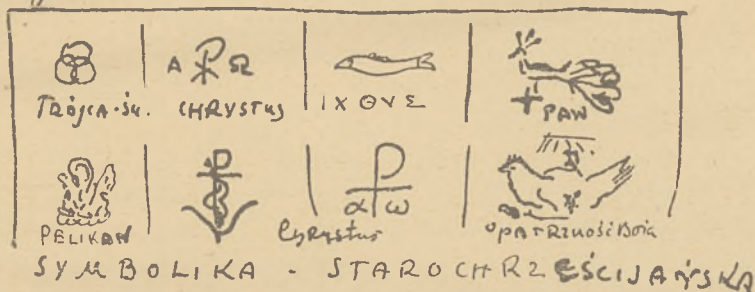 A Ω
TRÓJCA·ŚW. CHRYSTUS IXΘYΣ PAW
α ω
PELIKAN Chrystus OPATRZNOŚĆ Boża
SYMBOLIKA - STAROCHRZEŚCIJAŃSKA